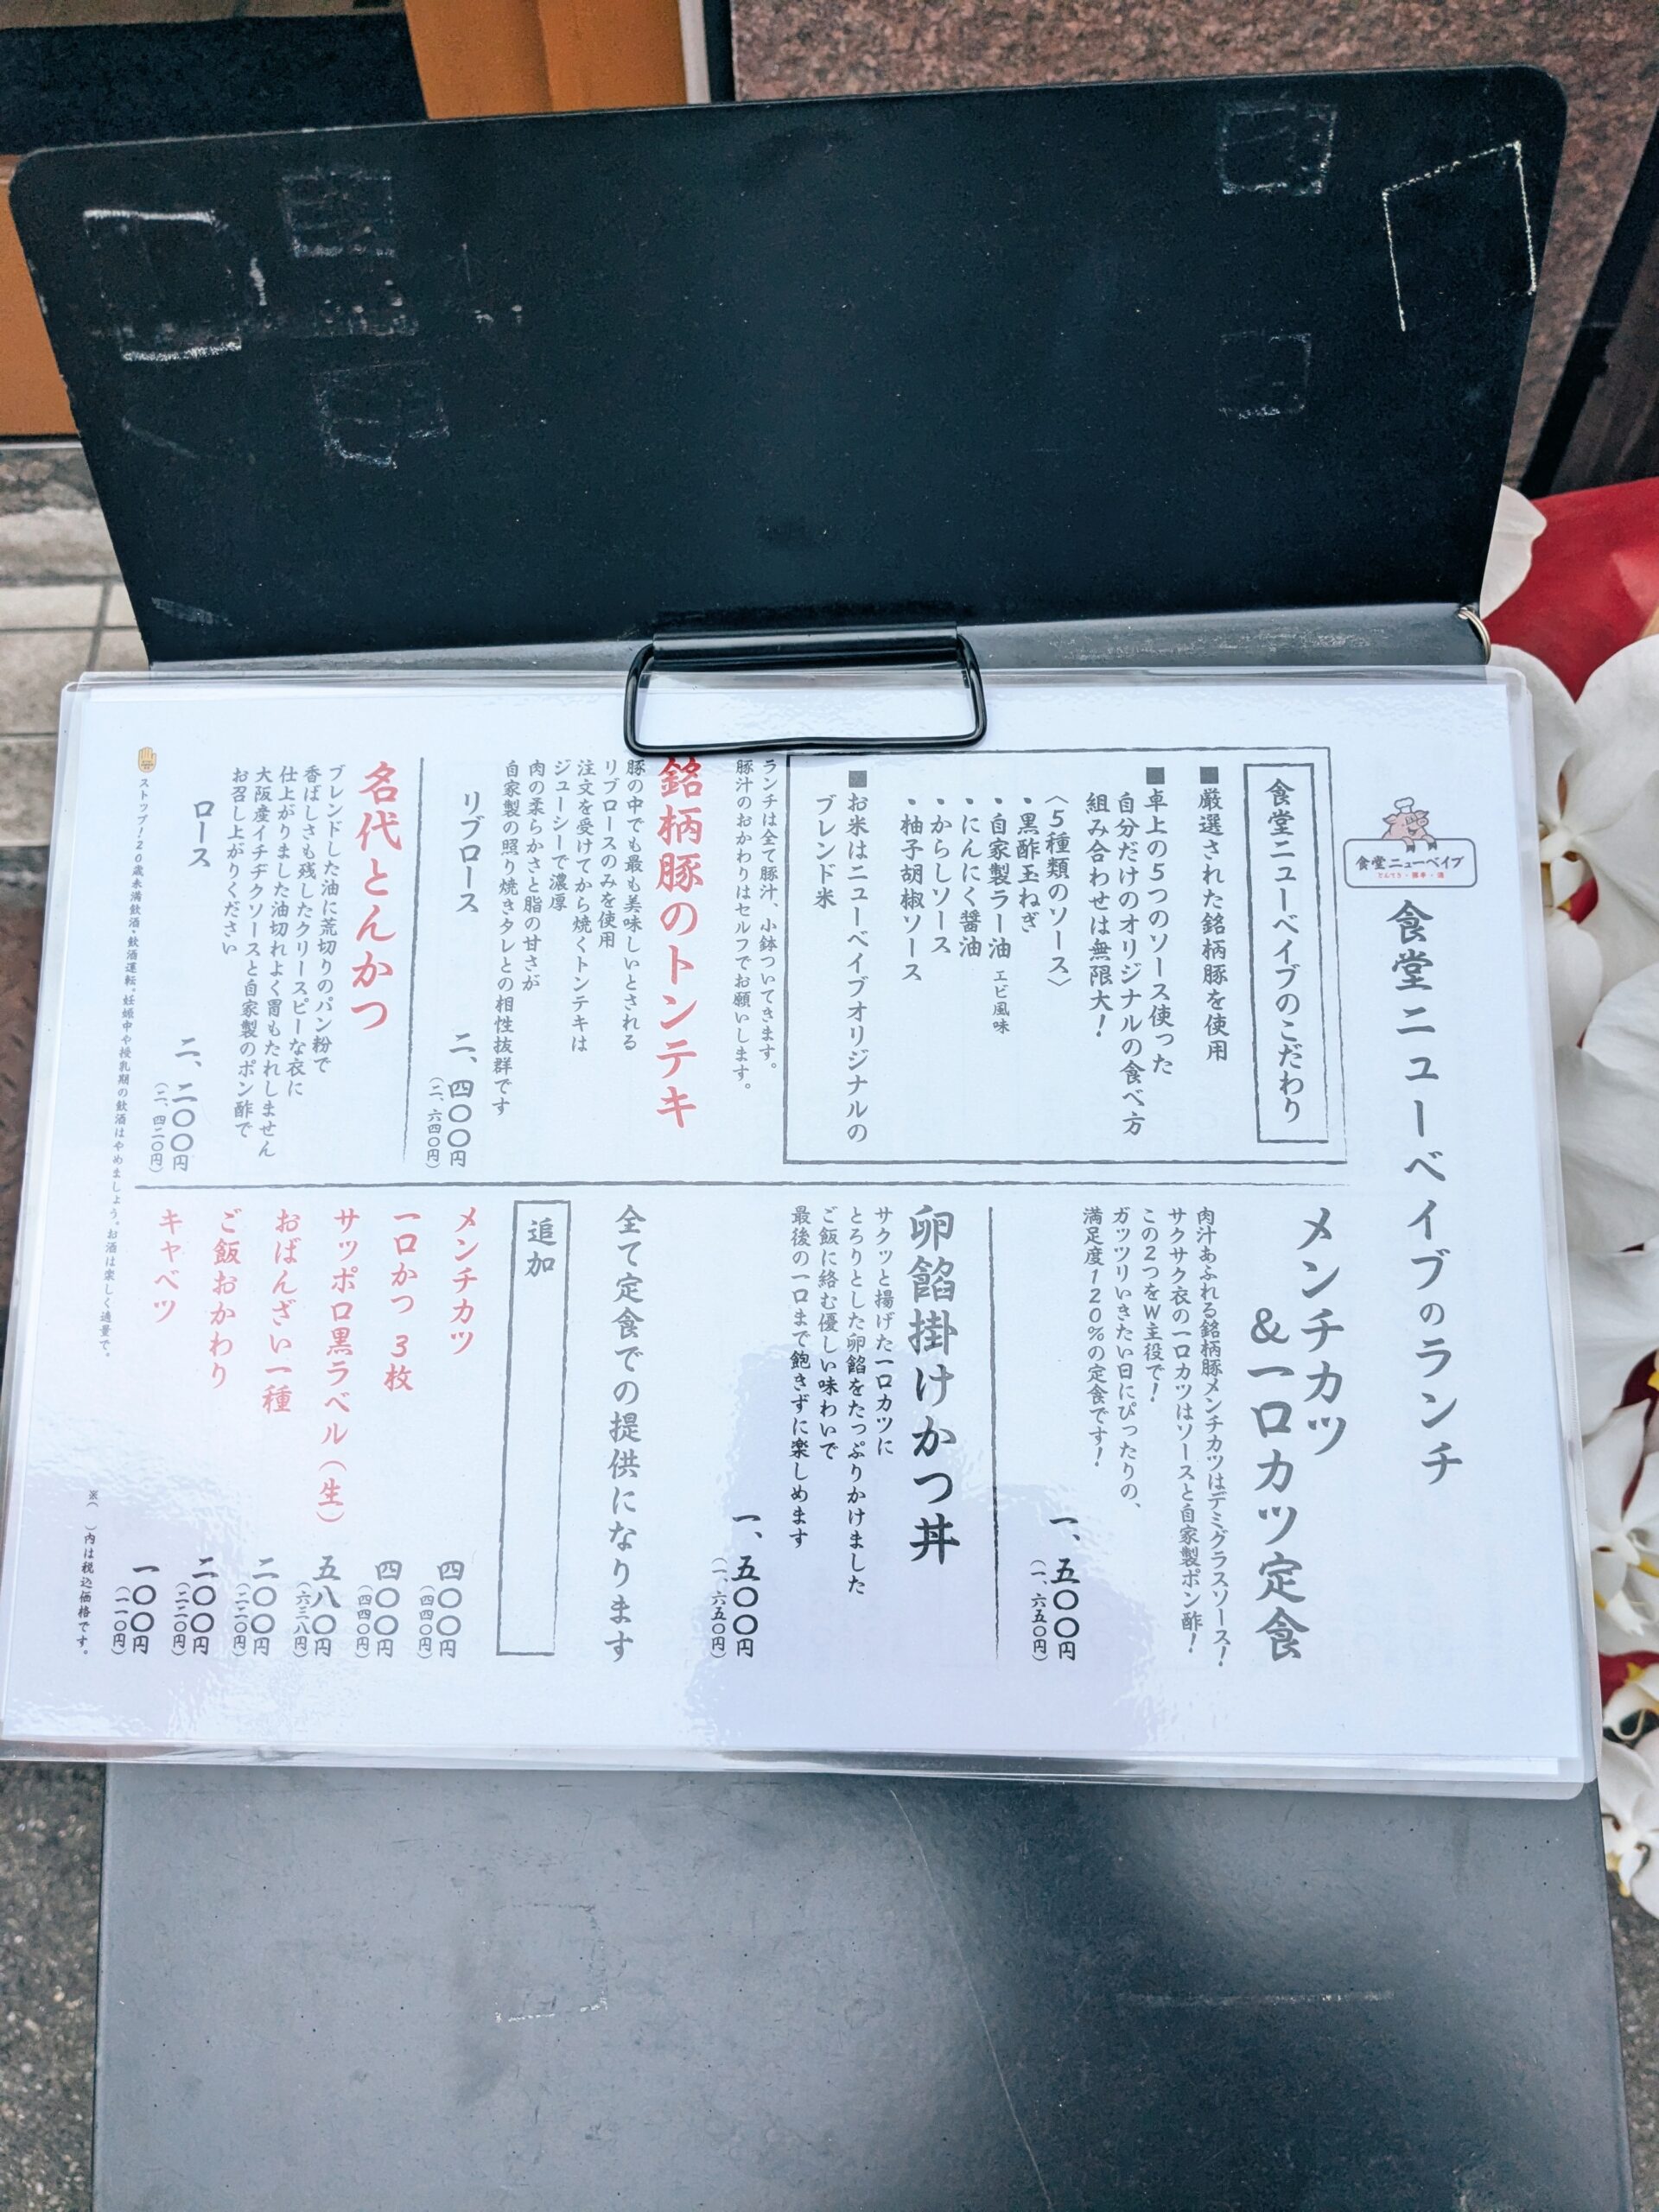 食堂ニューベイブ
とんてき・豚丼・酒
食堂ニューベイブのランチ
食堂ニューベイブのこだわり
■厳選された銘柄豚を使用
■卓上の5つのソース使った
自分だけのオリジナルの食べ方
組み合わせは無限大！
〈5種類のソース〉
・黒酢玉ねぎ
・自家製ラー油 エビ風味
・にんにく醤油
・からしソース
・柚子胡椒ソース
■お米はニューベイブオリジナルの
ブレンド米
ランチは全て豚汁、小鉢ついてきます。
豚汁のおかわりはセルフでお願いします。
銘柄豚のトンテキ
豚の中でも最も美味しいとされる
リブロースのみを使用
注文を受けてから焼くトンテキは
ジューシーで濃厚
肉の柔らかさと脂の甘さが
自家製の照り焼きタレとの相性抜群です
リブロース 二、四〇〇円
（二、六四〇円）
名代とんかつ
ブレンドした油に荒切りのパン粉で
香ばしさも残したクリースピーな衣に
仕上がりました油切れよく胃もたれしません
大阪産イチヂクソースと自家製のポン酢で
お召し上がりください
ロース 二、二〇〇円
（二、四二〇円）
メンチカツ
＆一口カツ定食
肉汁あふれる銘柄豚メンチカツはデミグラスソース！
サクサク衣の一口カツはソースと自家製ポン酢！
この2つをW主役で！
ガッツリいきたい日にぴったりの、
満足度120%の定食です！
一、五〇〇円
（一、六五〇円）
卵餡掛けかつ丼
サクッと揚げた一口カツに
とろりとした卵餡をたっぷりかけました
ご飯に絡む優しい味わいで
最後の一口まで飽きずに楽しめます
一、五〇〇円
（一、六五〇円）
全て定食での提供になります
追加
メンチカツ 四〇〇円
（四四〇円）
一口かつ 3枚 四〇〇円
（四四〇円）
サッポロ黒ラベル（生） 五八〇円
（六三八円）
おばんざい一種 二〇〇円
（二二〇円）
ご飯おかわり 二〇〇円
（二二〇円）
キャベツ 一〇〇円
（一一〇円）
※（ ）内は税込価格です。
ストップ！20歳未満飲酒・飲酒運転。妊娠中や授乳期の飲酒はやめましょう。お酒は楽しく適量で。